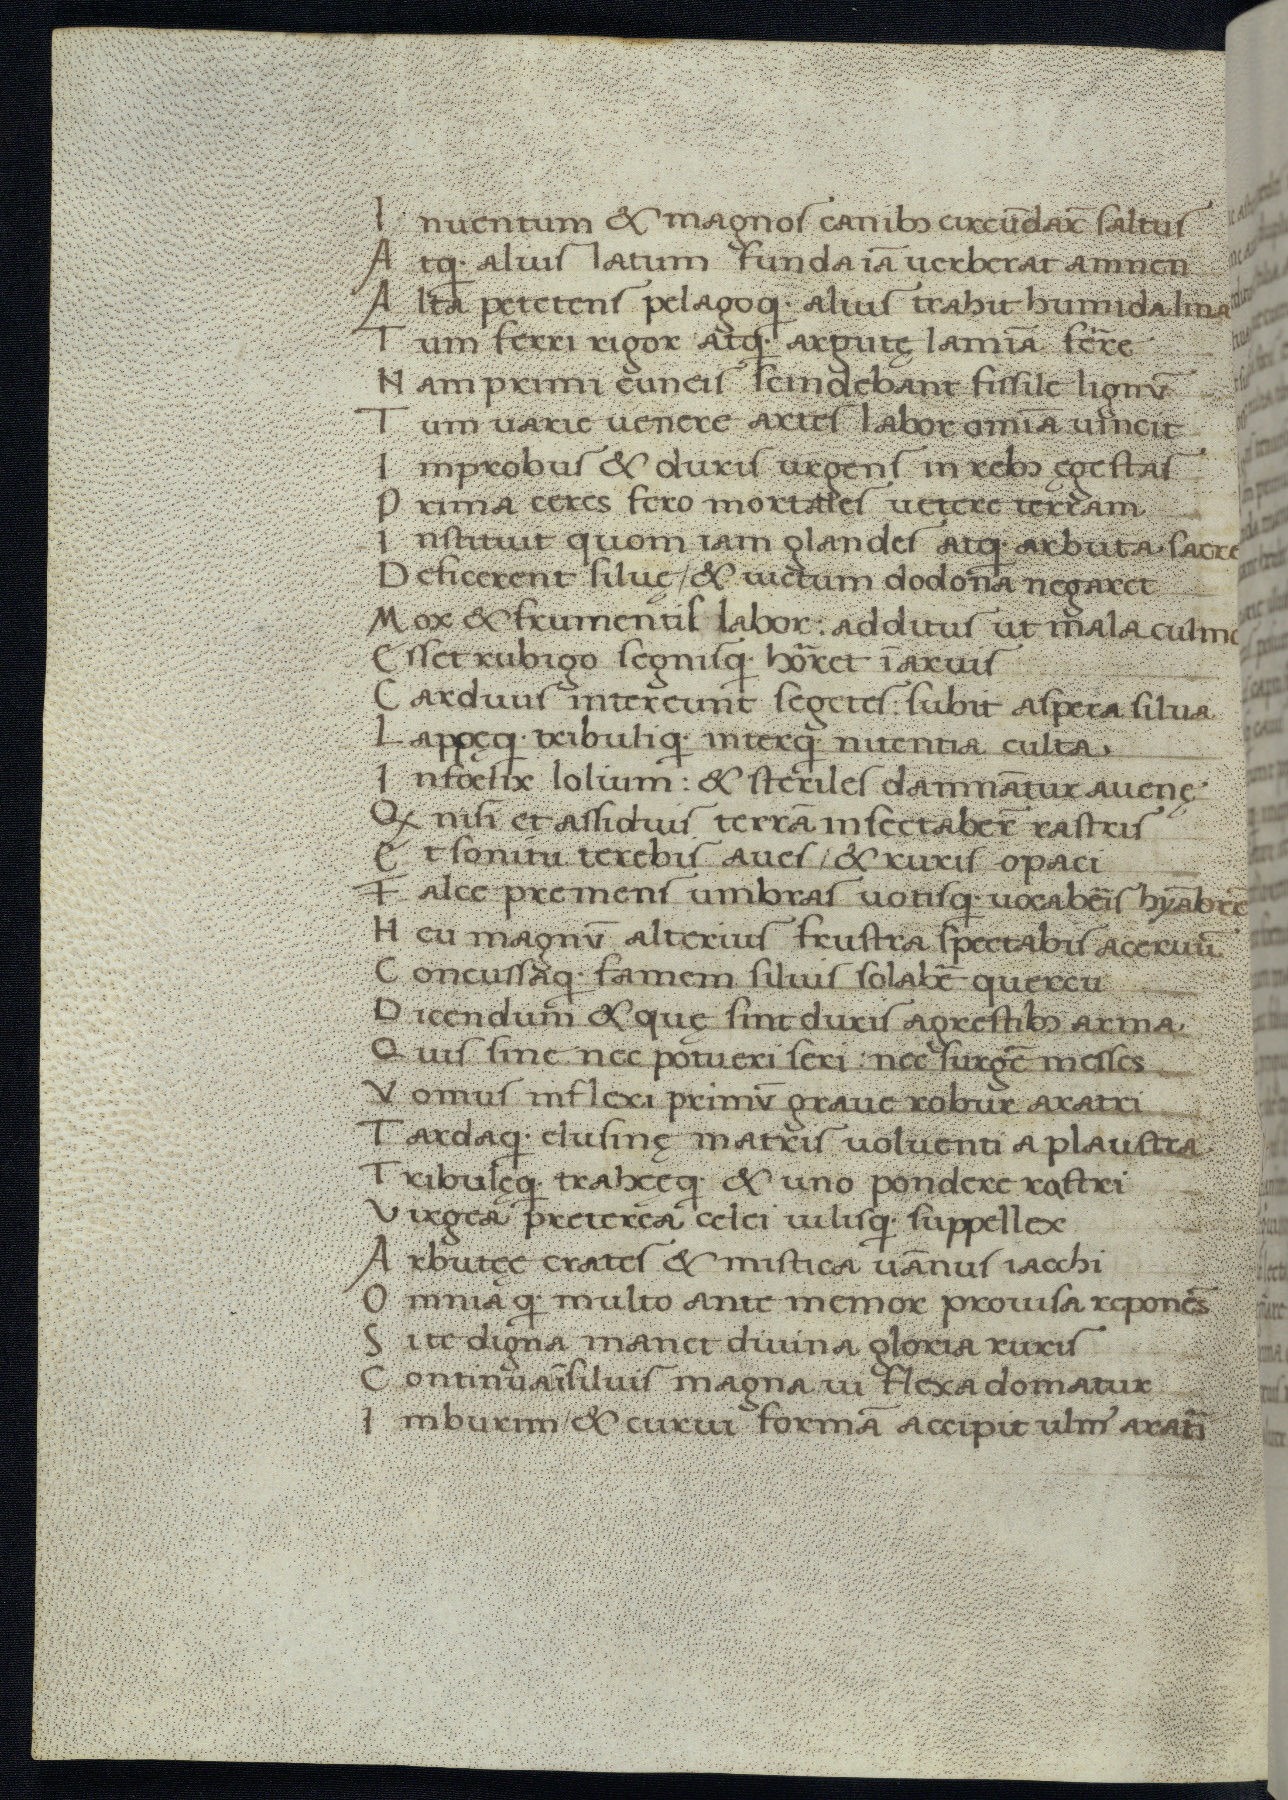 I nuentum & magnos canibꝫ circūdar̄ saltus
A tq· alius latum funda iā uerberat amnen
A lta petetens pelagoq· alius trahit humida lina
T um ferri rigor atq· argutę lamīa ser̄re
N am primi cuneis scindebant fissile lignū
T um uarie uenere artes labor omīa uincit
I mprobus & duris urgens in rebꝫ egestas
P rima ceres fero mortales uetere terram
I nstituit quom iam glandes atq· arbuta sacre
D eficerent siluę / & uictum dodona negaret
M ox & frumentis labor: additus ut mala culmo
E sset rubigo segnisq· hōrret ī aruis
C arduus intereunt segetes: subit aspera silua
L appęq· tribuliq· interq· nitentia culta.
I nfoelix lolium: & steriles damnātur auenę
Q nisi et assiduis terrā insectaber̄ rastris
E t sonitu terebis aues / & ruris opaci
F alce premens umbras uotisq· uocabēis hyābrē
H eu magnū alterius frustra spectabis aceruū
C oncussaq· famem siluis solabē quercu
D icendum & quę sint duris agrestibꝫ arma.
Q uis sine nec potueri seri: nec surgē messes
V omus inflexi primū graue robur aratri
T ardaq· elusinę matris uoluenti a plaustra
T ribulęq· traheęq· & uno pondere rastri
V irgea preterea celei uilisq· suppellex
A rbutęe crates & mistica uānus iacchi
O mnia q· multo ante memor prouisa reponēs
S i te digna manet diuina gloria ruris
C ontinuaīsiluis magna ui flexa domatur
I mburim / & curui formā accipit ulm' aratī